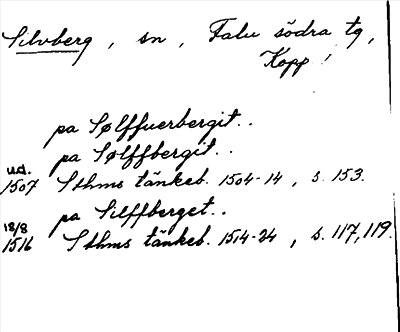 Silvberg, sn, Falu södra tg,
Kopp!
pa Sølffuerbergit..
pa Sølffbergit..
ud.
1507 Sthms tänkeb. 1504-14, s. 153.
pa Silffberget..
18/8
1516 Sthms tänkeb. 1514-24, s. 117, 119.